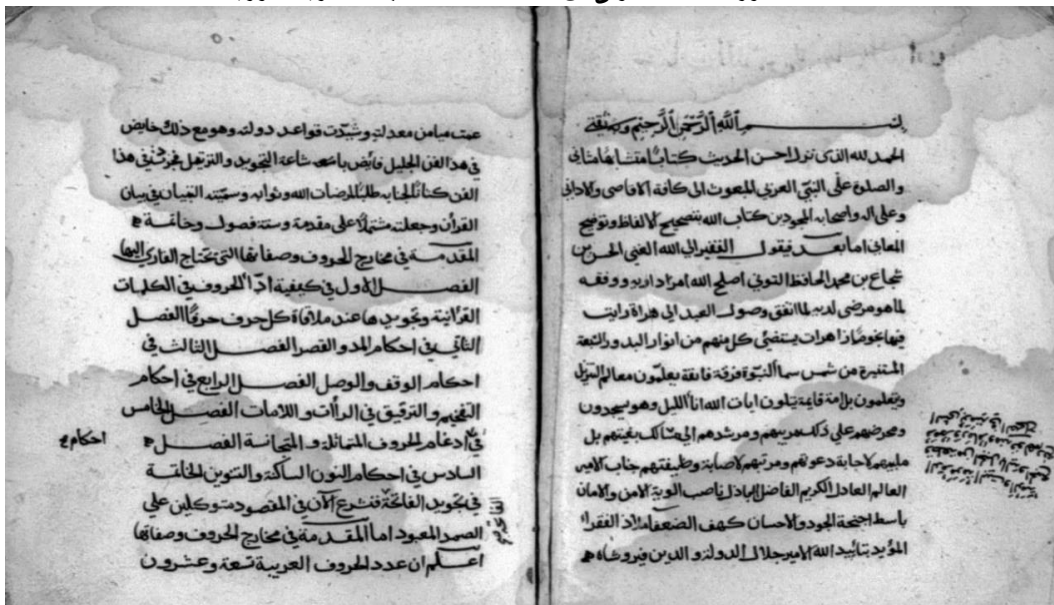 بسم الله الرحمن الرحيم وبه ثقتي
الحمد لله الذى نزل احسن الحديث كتابا متشابها مثانى
والصلوة على النبي العربي المبعوث الى كافة الاقاصى والادانى
وعلى اله واصحابه المجودين كتاب الله بتصحيح الالفاظ وتوضيح
المعانى اما بعد فيقول الفقير الى الله الغنى الحسن بن
شجاع بن محمد الحافظ التونى اصلح الله امر اد ووفقه
لما هو مرضى لديه لما اتفق وصول العبد الى هراة رايت
فيها نجوما زاهرات يستضئ كل منهم من انوار البدور التبعة
المستنيرة من شمس سما النبوة فرقة فايقة يعلمون معالم التنزيل
ويعلمون بلامة قايمة يتلون ايات الله اناء الليل وهم يسجدون
ومحرضهم على ذلك مربيهم ومرشدهم الى مسالك بغيتهم بل
ملبيهم لاجابة دعوتهم ومرتبهم لاصابة وظيفتهم جناب الامير
العالم العادل الكريم الفاضل الباذل ناصب الوية الامن والامان
باسط اجنحة الجود والاحسان كهف الضعفا ملاذ الفقرا
المؤيد بتائيد الله الامير جلال الدولة والدين فيروزشاه
عمت ميامن معدلته وشيدت قواعد دولته وهو مع ذلك خايض
في هذا الفن الجليل فايض باشعة شاعة التجويد والترتيل فحررت في هذا
الفن كتابا لجنابه طلبا لمرضات الله وثوابه وسميته التبيان في بيان
القرأن وجعلته مشتملا على مقدمة وستة فصول وخاتمة
المقدمة في مخارج الحروف وصفاتها التى يحتاج القارئ اليها
الفصل الاول في كيفية اداء الحروف في الكلمات
القرآنية وتجويدها عند ملاقاة كل حرف حرفا الفصل
الثاني في احكام المد والقصر الفصل الثالث في
احكام الوقف والوصل الفصل الرابع في احكام
التفخيم والترقيق في الرأات واللامات الفصل الخامس
في ادغام الحروف المتماثلة والمتجانسة الفصل
احكام
السادس في احكام النون الساكنة والتنوين الخاتمة
في تجويد الفاتحة فنشرع الآن في المقصود متوكلين على
الفاتحة
الصمد المعبود اما المقدمة في مخارج الحروف وصفاتها
اعلم ان عدد الحروف العربية تسعة وعشرون